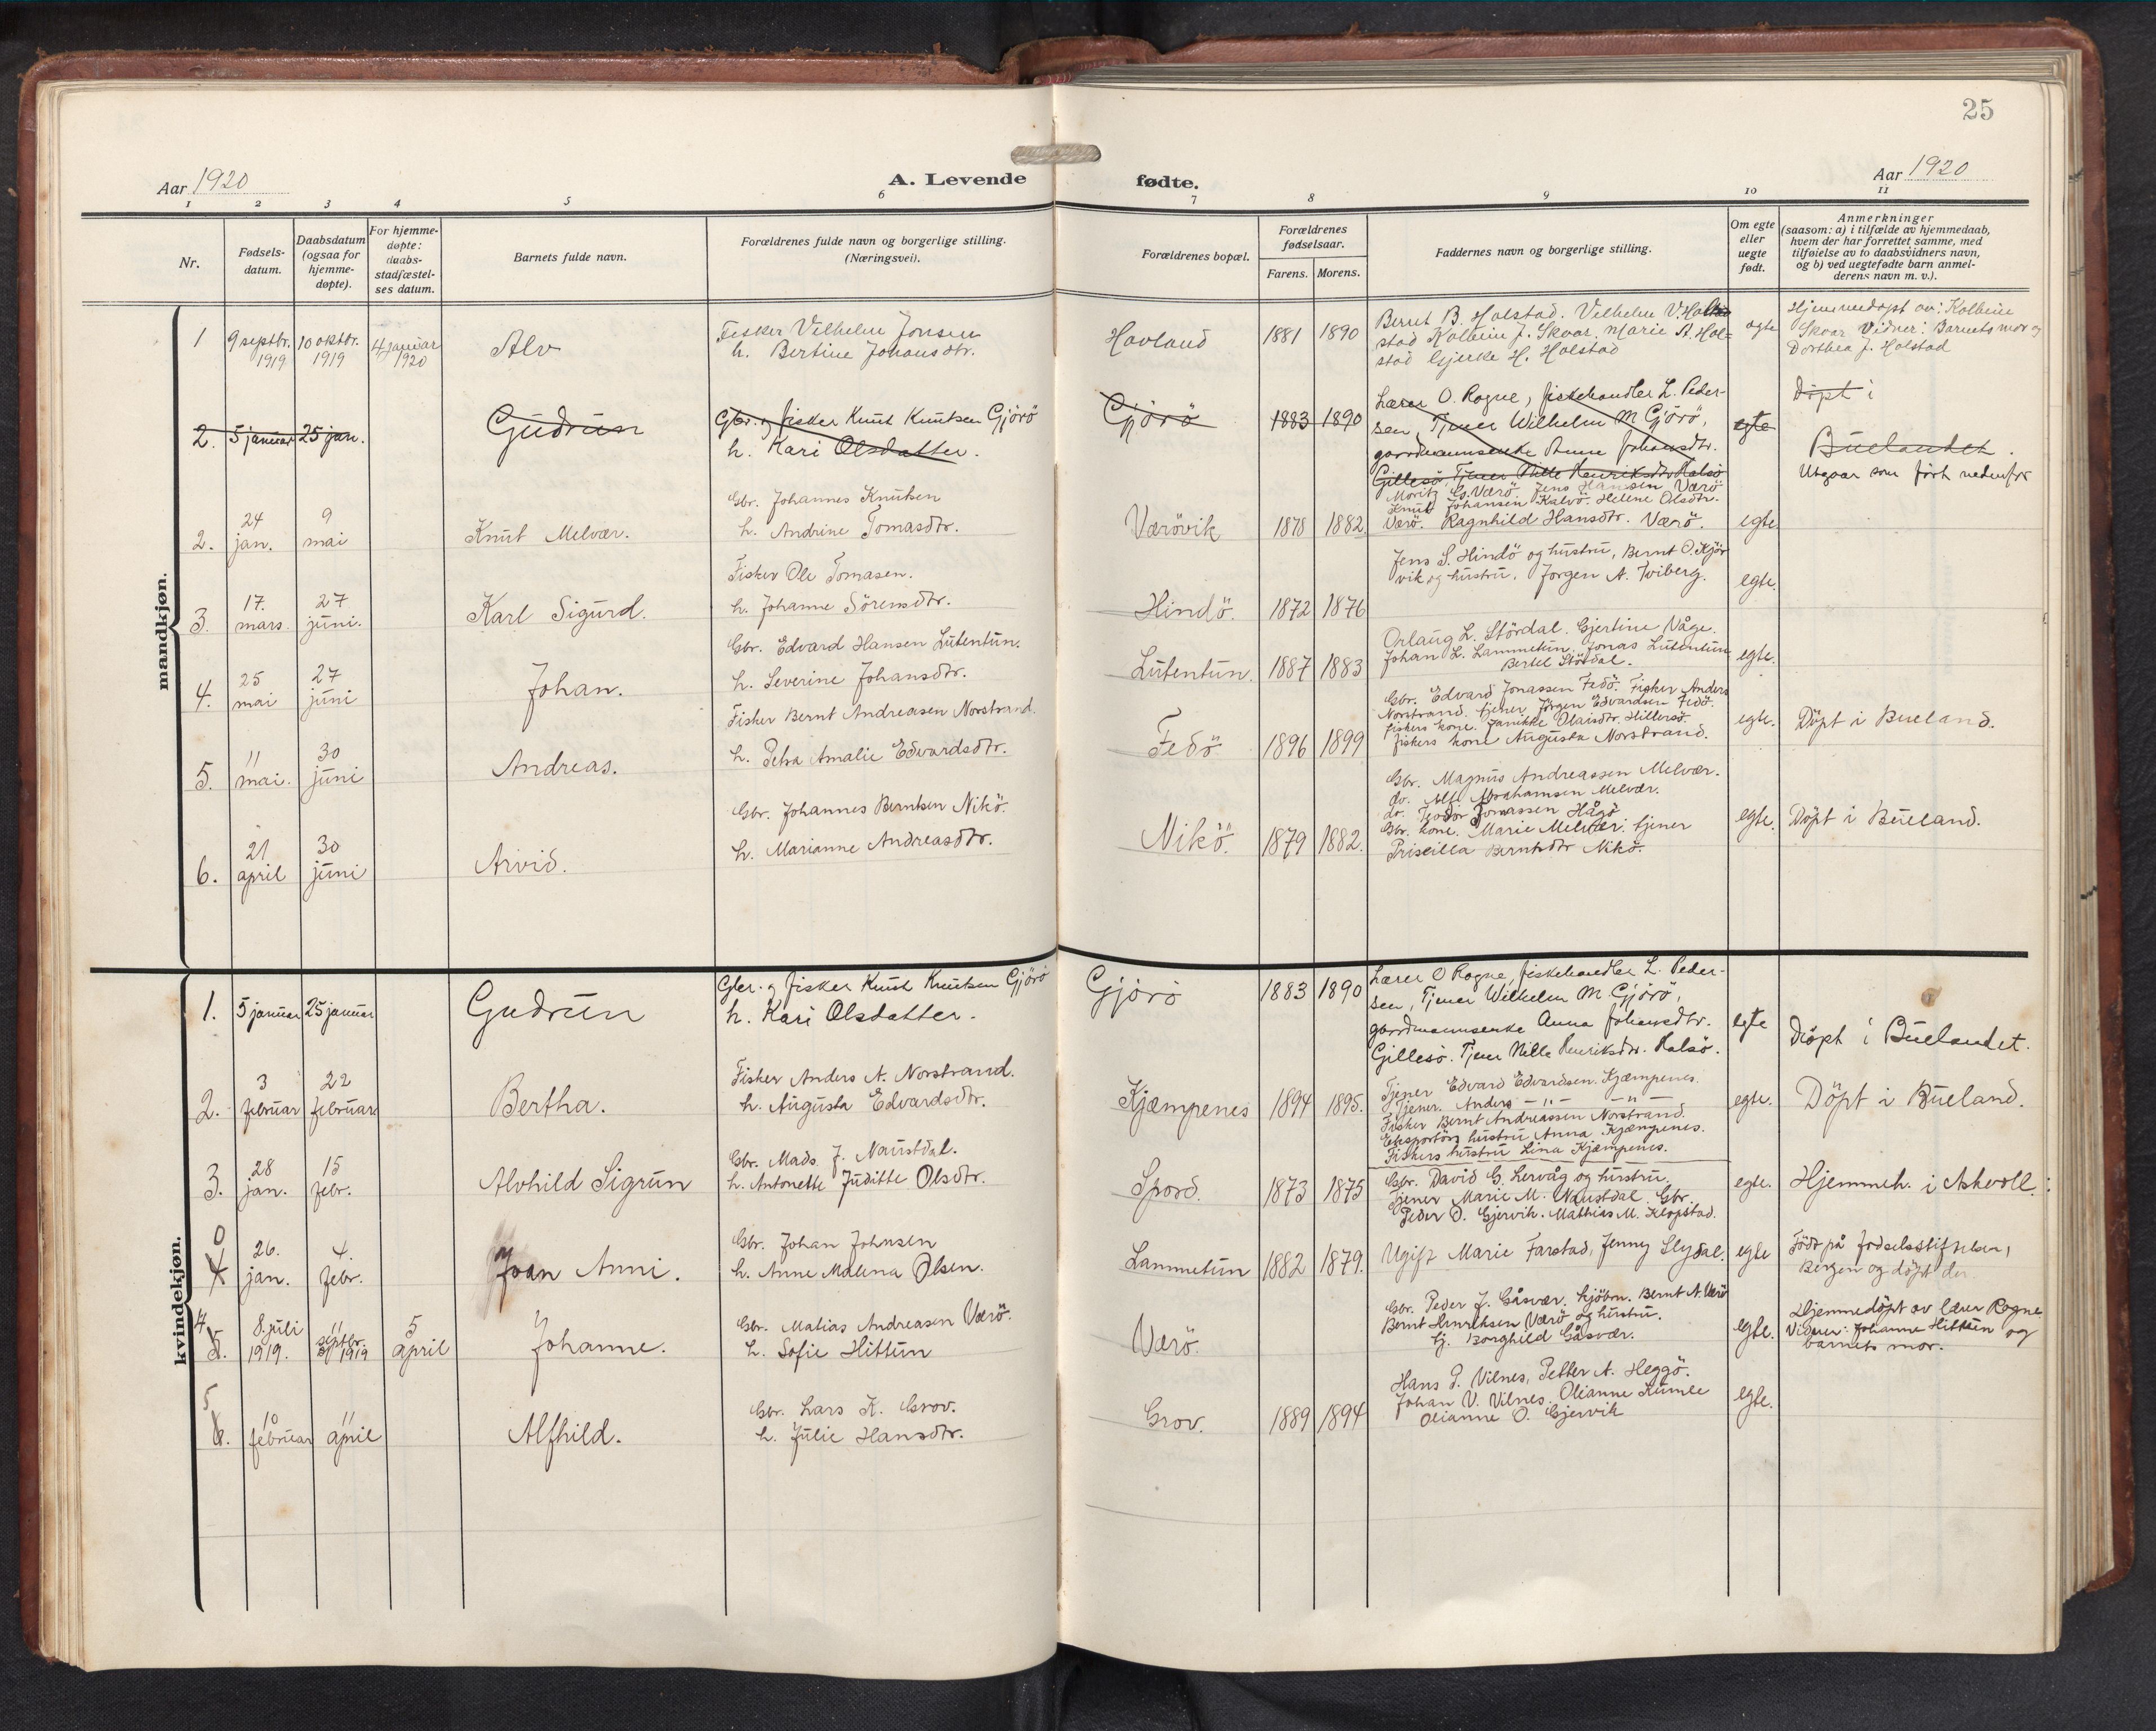 25
Aar 1920
A. Levende
fødte.
Aar 1920
1 2 3 4 5 6 7 8 9 10 11
Nr.
Fødsels-
datum.
Daabsdatum
(ogsaa for
hjemme-
døpte).
For hjemme-
døpte:
daabs-
stadfæstel-
ses datum.
Barnets fulde navn.
Forældrenes fulde navn og borgerlige stilling.
(Næringsvei).
Forældrenes bopæl.
Forældrenes
fødselsaar.
Farens. Morens.
Faddernes navn og borgerlige stilling.
Om egte
eller
uegte
født.
Anmerkninger
(saasom: a) i tilfælde av hjemmedaab,
hvem der har forrettet samme, med
tilføielse av to daabsvidners navn,
og b) ved uegtefødte barn anmel-
derens navn m. v.).
mandkjøn.
1
9 septbr.
1919
10 oktbr.
1919
4 januar
1920
Alv
Fisker Vilhelm Jonsen
h. Bertine Johansdtr.
Havland
1881
1890
Bernt B. Holstad. Vilhelm V. Hol
stad Kolbein J. Skvar, Marie A. Hol=
stad Gjerke H. Holstad
egte
Hjemmedøpt av: Kolbein
Skvar Vidner: Barnets mor og
Dorthea J. Holstad
2.
5 januar
25 jan.
Gudrun
Gbr. og fisker Knut Knutsen Gjörö
h. Kari Olsdatter.
Gjörö
1883
1890
Lærer O. Rogne, fiskehandler L. Peder-
sen, Tjener Wilhelm M Gjörö,
gaardmannsenke Anna Johansdtr.
Gillesö, Tjener Nille Henriksdtr Halsö
egte
Døpt i
Buelandet.
Utgaar som ført nedenfor
2.
24
jan.
9
mai
Knut Melvær.
Gbr. Johannes Knutsen
h. Andrine Tomasdtr.
Værövik
1878
1882.
Moritz Værö. Jens Hansen Værö
Knut Johansen Kalvö. Helene Olsdtr.
Værö. Ragnhild Hansdtr. Værö.
egte
3.
17.
mars.
27
juni.
Karl Sigurd.
Fisker Ole Tomasen.
h. Johanne Sörensdtr.
Hindö.
1872
1876
Jens S. Hindö og hustru, Bernt O. Kjör
vik og hustru. Jörgen A. Tviberg.
egte.
4.
25
mai
27
juni
Johan.
Gbr. Edvard Hansen Lutentun.
h. Severine Johansdtr.
Lutentun.
1887
1883
Orlaug L. Stördal. Gjertine Våge.
Johan L. Lammetun, Jonas Lutentun
Bertel Stördal.
egte.
5.
11
mai.
30
juni
Andreas.
Fisker Bernt Andreasen Norstrand.
h. Petra Amalie Edvardsdtr.
Fedö
1896
1899
Gbr. Edvard Jonassen Fedö. Fisker Anders
Norstrand. tjener Jörgen Edvardsen Fedö.
fiskers kone. Janikke Olaisdtr. Hillersö.
fiskers kone Augusta Norstrand.
egte.
Döpt i Bueland.
6.
21
april
30
juni
Arvid.
Gbr. Johannes Berntsen Nikö.
h. Marianne Andreasdtr.
Nikö.
1879
1882.
Gbr. Magnus Andreassen Melvær.
do. Alf Abrahamsen Melvær.
do. Teodor Jonassen Hågö
Gbr. kone. Marie Melvær. tjener
Priscilla Berntsdtr Nikö.
egte.
Döpt i Bueland.
kvindekjøn.
1.
5 januar
25 januar
Gudrun
Gbr. og fisker Knut Knutsen Gjörö
h. Kari Olsdatter.
Gjörö
1883
1890
Lærer O Rogne, fiskehandler L. Peder-
sen, Tjener Wilhelm M Gjörö,
gaardmannsenke Anna Johansdtr.
Gillesö. Tjener Nille Henriksdtr. Halsö.
egte
Döpt i Buelandet.
2.
3
februar
22
februar
Bertha.
Fisker Anders A. Norstrand.
h. Augusta Edvardsdtr.
Kjæmpenes
1894
1895.
Tjener Edvard Edvardsen. Kjæmpenes.
Tjener. Anders — " — — " —
Fisker Bernt Andreassen Norstrand.
Eksportörs hustru Anna Kjæmpenes.
Fiskers hustru Lina Kjæmpenes.
egte.
Döpt i Bueland.
3.
28
jan.
15
febr.
Alvhild Sigrun
Gbr. Mads J. Naustdal.
h. Antonette Juditte Olsdtr.
Spord.
1873
1875
Gbr. David G. Lervåg og hustru.
Tjener Marie M. Naustdal. Gbr.
Peder O. Gjervik. Mathias M. Klopstad.
egte.
Hjemmeh. i Askvoll.
0
4
26.
jan.
4.
febr.
Joan Anni.
Gbr. Johan Johnsen
h. Anne Malena Olsen.
Lammetun
1882
1879.
Ugift Marie Farstad, Jenny Slydal.
egte
Födt på födselsstiftelsen,
Bergen og döpt der.
4.
5.
8. juli
1919.
11
septbr.
1919
5
april
Johanne.
Gbr. Matias Andreasen Værö.
h. Sofie Hittun
Værö.
Gbr. Peder J. Gåsvær. kjöbm. Bernt A. Værö
Bernt Henriksen Værö og hustru.
tj. Borghild Gåsvær.
egte.
Hjemmedöpt av lærer Rogne
Vidner: Johanne Hittun og
barnets mor.
5
6.
10
februar
11
april
Alfhild.
Gbr. Lars K. Grov.
h. Julie Hansdtr.
Grov.
1889
1894
Hans P. Vilnes, Petter A. Heggö.
Johan V. Vilnes. Olianne Kumle
Olianne O. Gjervik
egte.